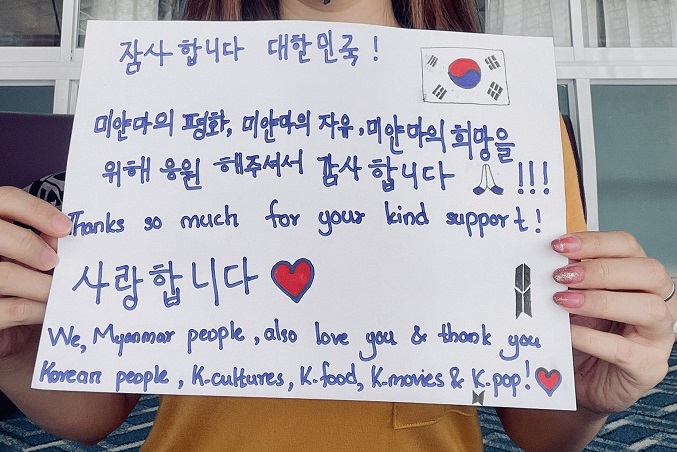 잠사합니다 대한민국!
미얀마의 평화, 미얀마의 자유, 미얀마의 희망을
위해 응원 해주셔서 감사합니다 !!!
Thanks so much for your kind support!
사랑합니다
We, Myanmar people, also love you & thank you
Korean people, K-cultures, K-food, K-movies & K-pop!